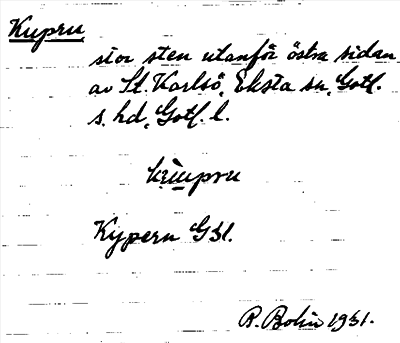 Kupru
stor sten utanför östra sidan
av St. Karlsö, Eksta sn, Gotl.
s. hd, Gotl. l.
Kypern GSl.
B. Bolin 1931.